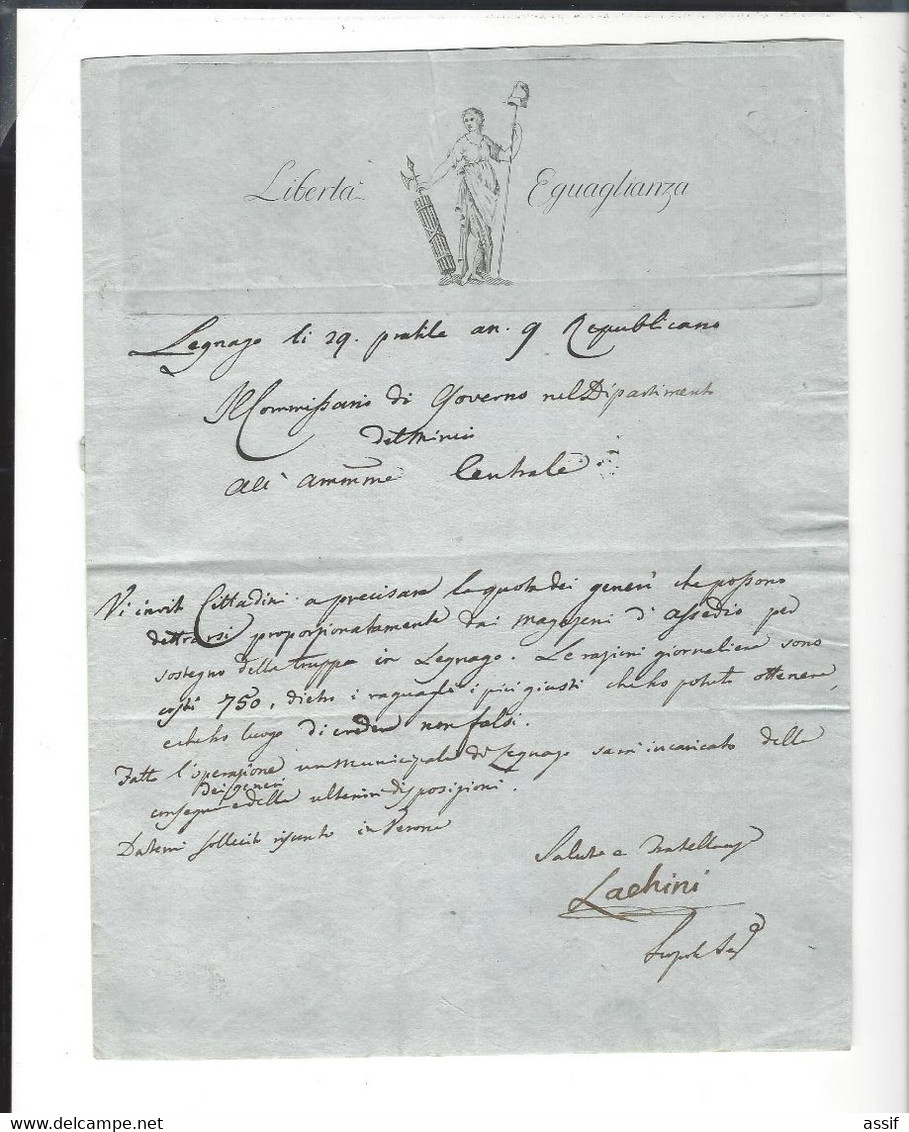 Libertà Eguaglianza
Legnago li 29. pratile an. 9 Republicano
Il Commissario di Governo nel Dipartimento
del Mincio
all' Centrale
Vi invito Cittadini a precisare la quota dei generi che possono
detrarsi proporzionatamente dai magazeni d'assedio per
sostegno della truppa in Legnago. Le razioni giornaliere sono
costì 750, dietro i raguagli i più giusti che ho potuto ottenere,
e che ho luogo di creder non falsi.
Fatto l'operazione un Municipale di Legnago sarà incaricato delle
dei generi
consegne e delle ulteriori disposizioni.
Datemi sollecito riscontro in Verona
Salute e Fratellanza
Lachini